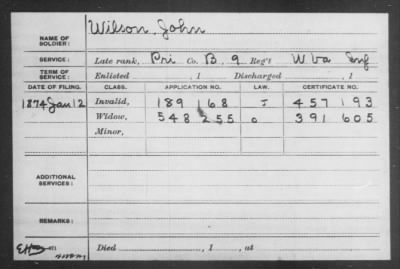 NAME OF SOLDIER: Wilson, John
SERVICE: Late rank, Pri Co. B, 9 Reg't W Va Inf
TERM OF SERVICE: Enlisted , 1 Discharged , 1
DATE OF FILING. CLASS. APPLICATION NO. LAW. CERTIFICATE NO.
1874 Jan 12 Invalid, 189 168 457 193
Widow, 548 255 391 605
Minor,
ADDITIONAL SERVICES:
REMARKS:
Died , 1 , at